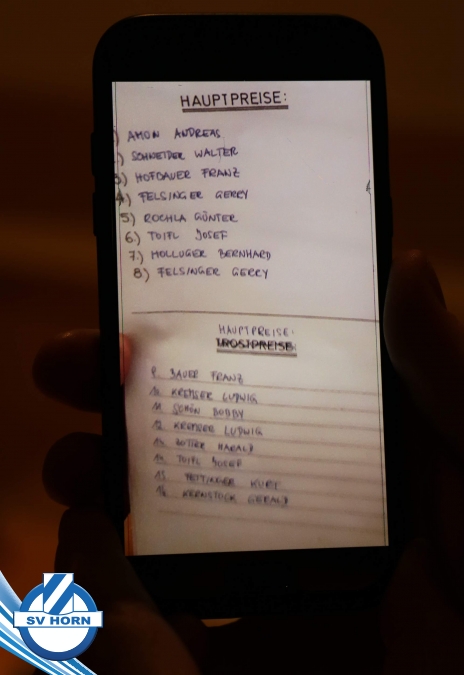 HAUPTPREISE:
) AMON ANDREAS
) SCHNEIDER WALTER
3) HOFBAUER FRANZ
4) FELSINGER GERRY
5) ROCHLA GÜNTER
6.) TOIFL JOSEF
7.) HOLLUGER BERNHARD
8) FELSINGER GERRY
HAUPTPREISE:
TROSTPREISE
9. BAUER FRANZ
10 KREMSER LUDWIG
11 SCHÖN BOBBY
12 KREMSER LUDWIG
13 HARALD
14 TOIFL JOSEF
15 KURT
16 KERNSTOCK GERALD
SV HORN